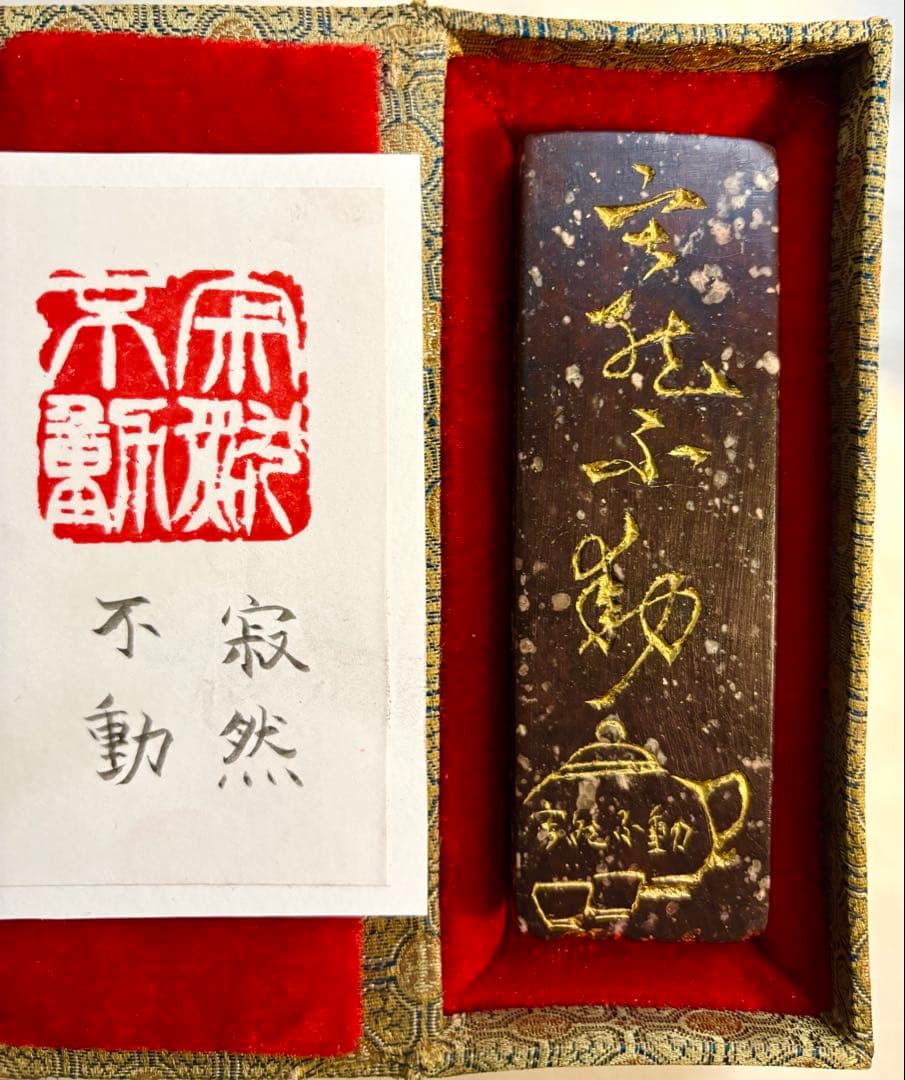 寂然
不動
寂然
不動
寂然不動
寂然不動